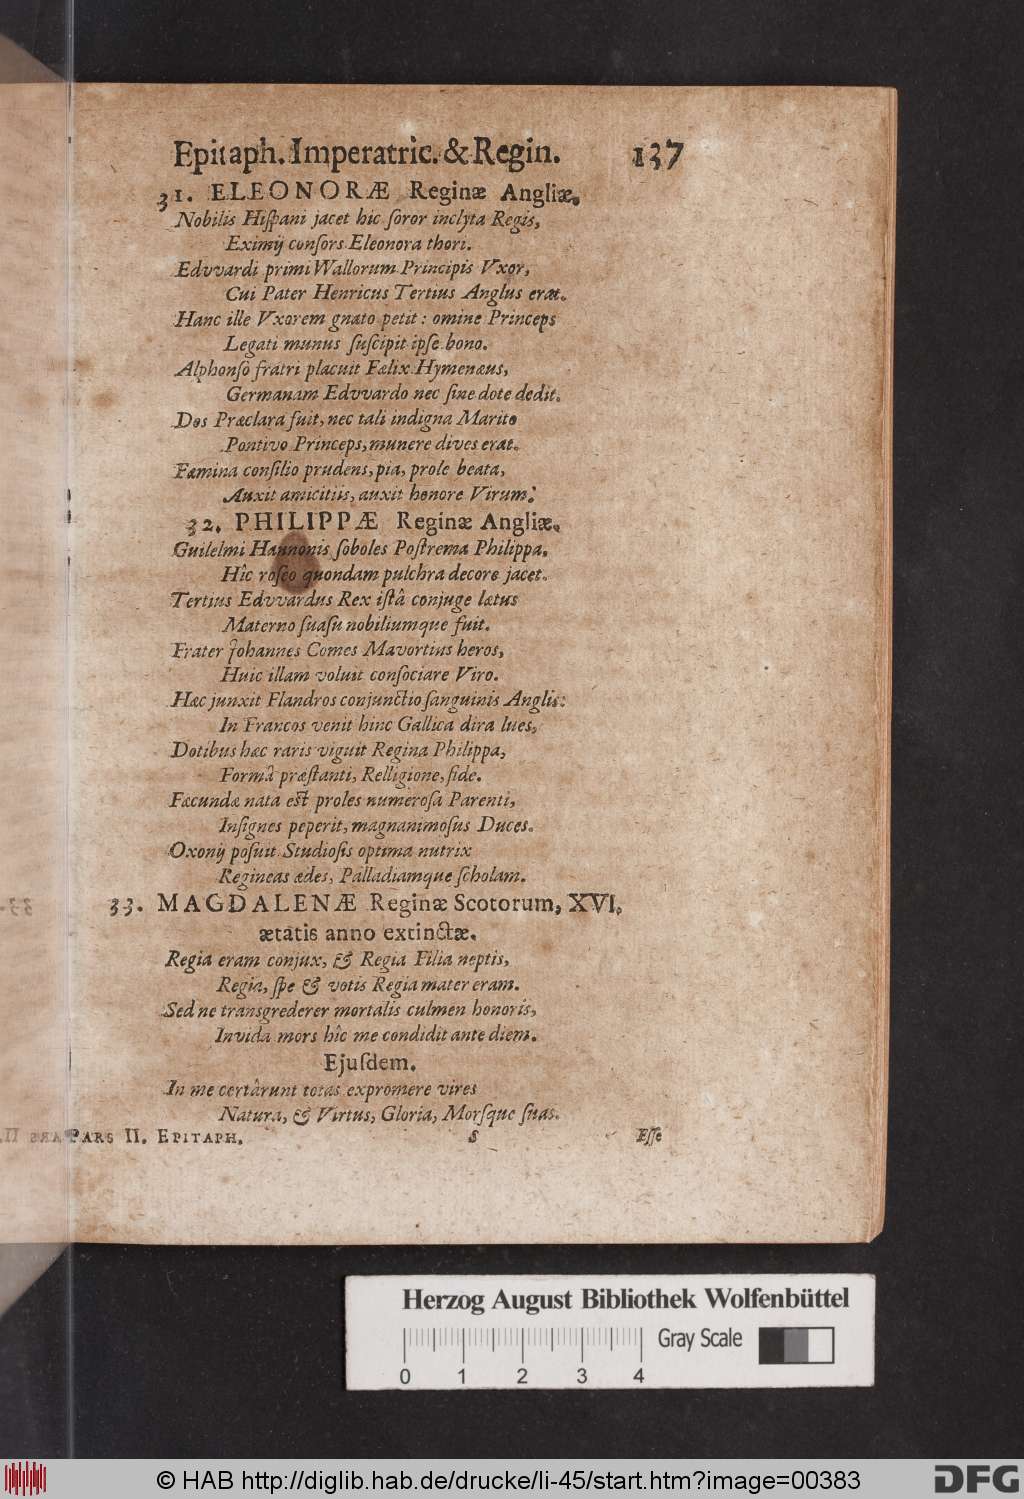 Epitaph. Imperatric. & Regin. 137
31. ELEONORÆ Reginæ Angliæ.
Nobilis Hiſpani jacet hic ſoror inclyta Regis,
Eximij conſors Eleonora thori.
Edvvardi primi Wallorum Principis Vxor,
Cui Pater Henricus Tertius Anglus erat.
Hanc ille Vxorem gnato petit: omine Princeps
Legati munus ſuſcipit ipſe bono.
Alphonſo fratri placuit Fælix Hymenæus,
Germanam Edvvardo nec ſine dote dedit.
Dos Præclara fuit, nec tali indigna Marito
Pontivo Princeps, munere dives erat.
Fæmina conſilio prudens, pia, prole beata,
Auxit amicitiis, auxit honore Virum.
32. PHILIPPÆ Reginæ Angliæ.
Guilelmi Hannonis ſoboles Poſtrema Philippa,
Hîc roſeo quondam pulchra decore jacet.
Tertius Edvvardus Rex iſtâ conjuge lætus
Materno ſuaſu nobiliumque fuit.
Frater Johannes Comes Mavortius heros,
Huic illam voluit conſociare Viro.
Hæc junxit Flandros conjunctio ſanguinis Anglis:
In Francos venit hinc Gallica dira lues,
Dotibus hæc raris viguit Regina Philippa,
Formâ præſtanti, Relligione, fide.
Fæcundæ nata eſt proles numeroſa Parenti,
Inſignes peperit, magnanimoſus Duces.
Oxonij poſuit Studioſis optima nutrix
Regineas ædes, Palladiamque ſcholam.
33. MAGDALENÆ Reginæ Scotorum, XVI.
ætatis anno extinctæ.
Regia eram conjux, & Regia Filia neptis,
Regia, ſpe & votis Regia mater eram.
Sed ne transgrederer mortalis culmen honoris,
Invida mors hîc me condidit ante diem.
Ejuſdem.
In me certârunt totas expromere vires
Natura, & Virtus, Gloria, Morſque ſuas.
PARS II. EPITAPH. S Eſſe
Herzog August Bibliothek Wolfenbüttel
Gray Scale
0 1 2 3 4
© HAB http://diglib.hab.de/drucke/li-45/start.htm?image=00383 DFG